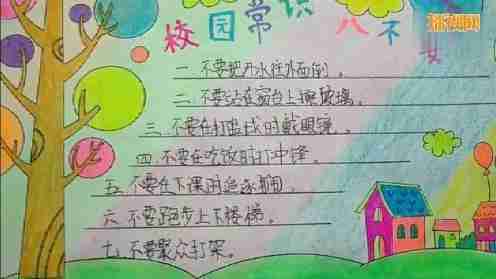 校园常识八不要
一、不要把开水往外面倒。
二、不要站在窗台上擦玻璃。
三、不要在打出找时戴眼镜。
四、不要在吃饭时打冲锋。
五、不要在下课时追逐打闹。
六、不要跑步上下楼梯。
七、不要聚众打架。